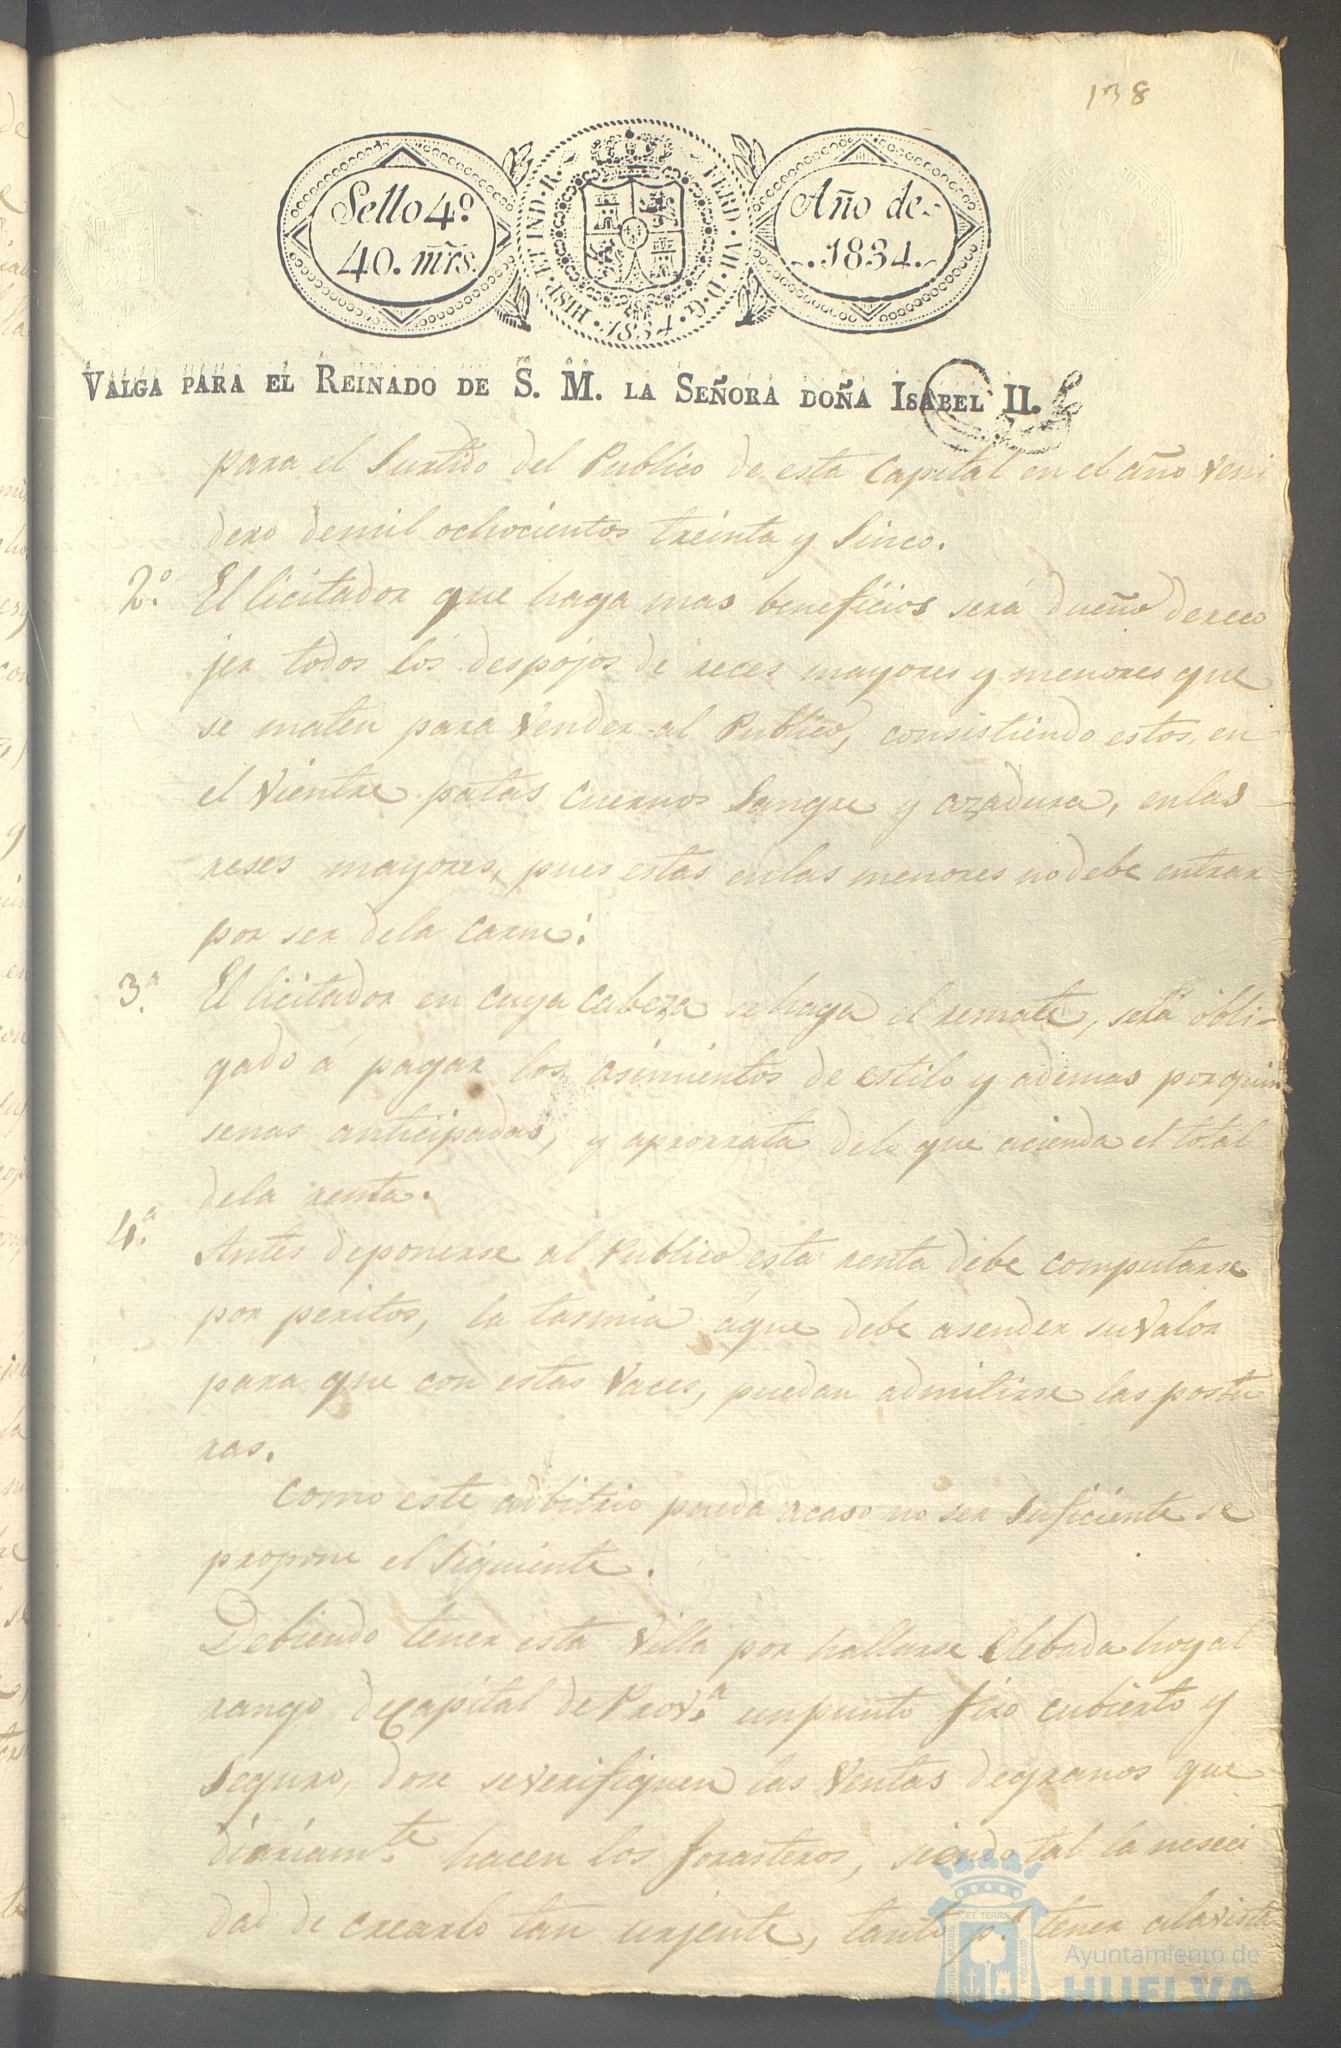 138
Sello 4º
40. mr̃s.
HISP. ET IND. R. FERD. VII. D. G. 1834.
Año de
1834.
VALGA PARA EL REINADO DE S. M. LA SEÑORA DOÑA ISABEL II.
para el Surtido del Publico de esta Capital en el año veni
dero demil ochocientos treinta y Sinco.
2º. El licitador que haga mas beneficios será dueño dereco
jer todos los despojos de reces mayores y menores que
se maten para vender al Publico, consistiendo estos en
el vientre patas cuernos Sangre y azadura, enlas
reses mayores, pues estas enlas menores no debe entrar
por ser dela Carne.
3ª. El licitador en cuya Cabeza sehaga el remate, será obli-
gado á pagar los asimientos de estilo y ademas porquin
senas anticipadas, y aprorrata delo que acienda el total
dela renta.
4ª. Antes deponerse al Publico esta renta debe computarse
por peritos, la tasmia áque debe asender suvalor
para que con estas vaces, puedan admitirse las postu
ras.
Como este adbitrio pueda acaso no ser Suficiente se
propone el Siguiente.
Debiendo tener esta Villa por hallarse Elebada hoy al
rango deCapital de Provª. unpunto fixo cubierto y
Seguro, dose severifiquen las Ventas degranos que
diariamte. hacen los forasteros, siendo tal la neseci
dad de crearlo tan urjente, tanto p.r tener alavista
ET TERRAE
CUSTODIA
PORTUS MARIS
Ayuntamiento de
HUELVA